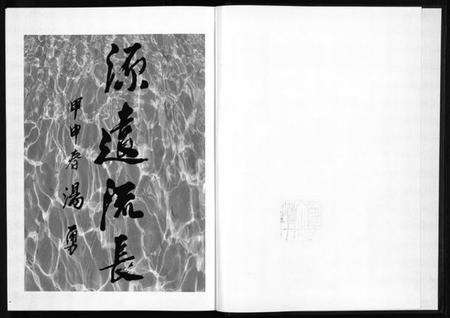 源遠流長
甲申春湯勇